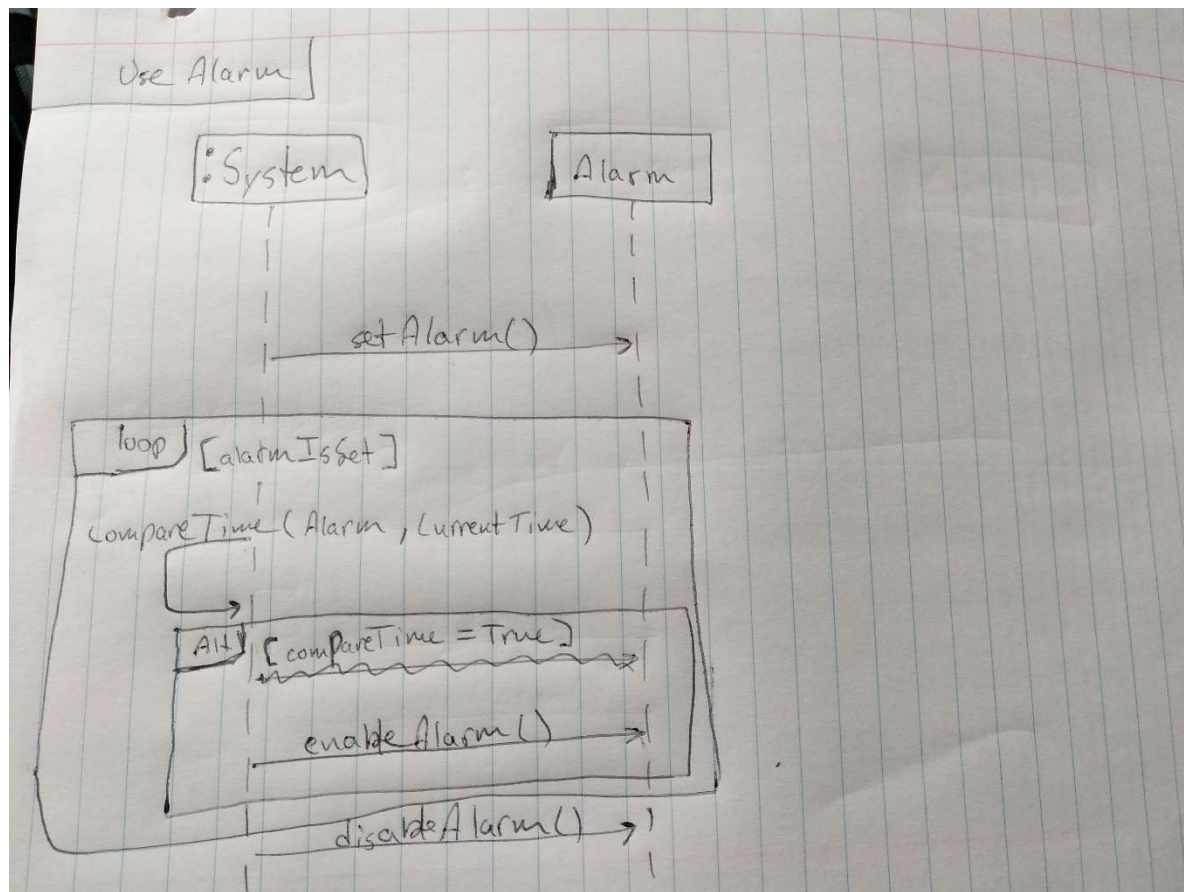 Use Alarm
:System
Alarm
setAlarm()
loop [alarmIsSet]
compareTime(Alarm, CurrentTime)
Alt [compareTime = True]
enableAlarm()
disableAlarm()